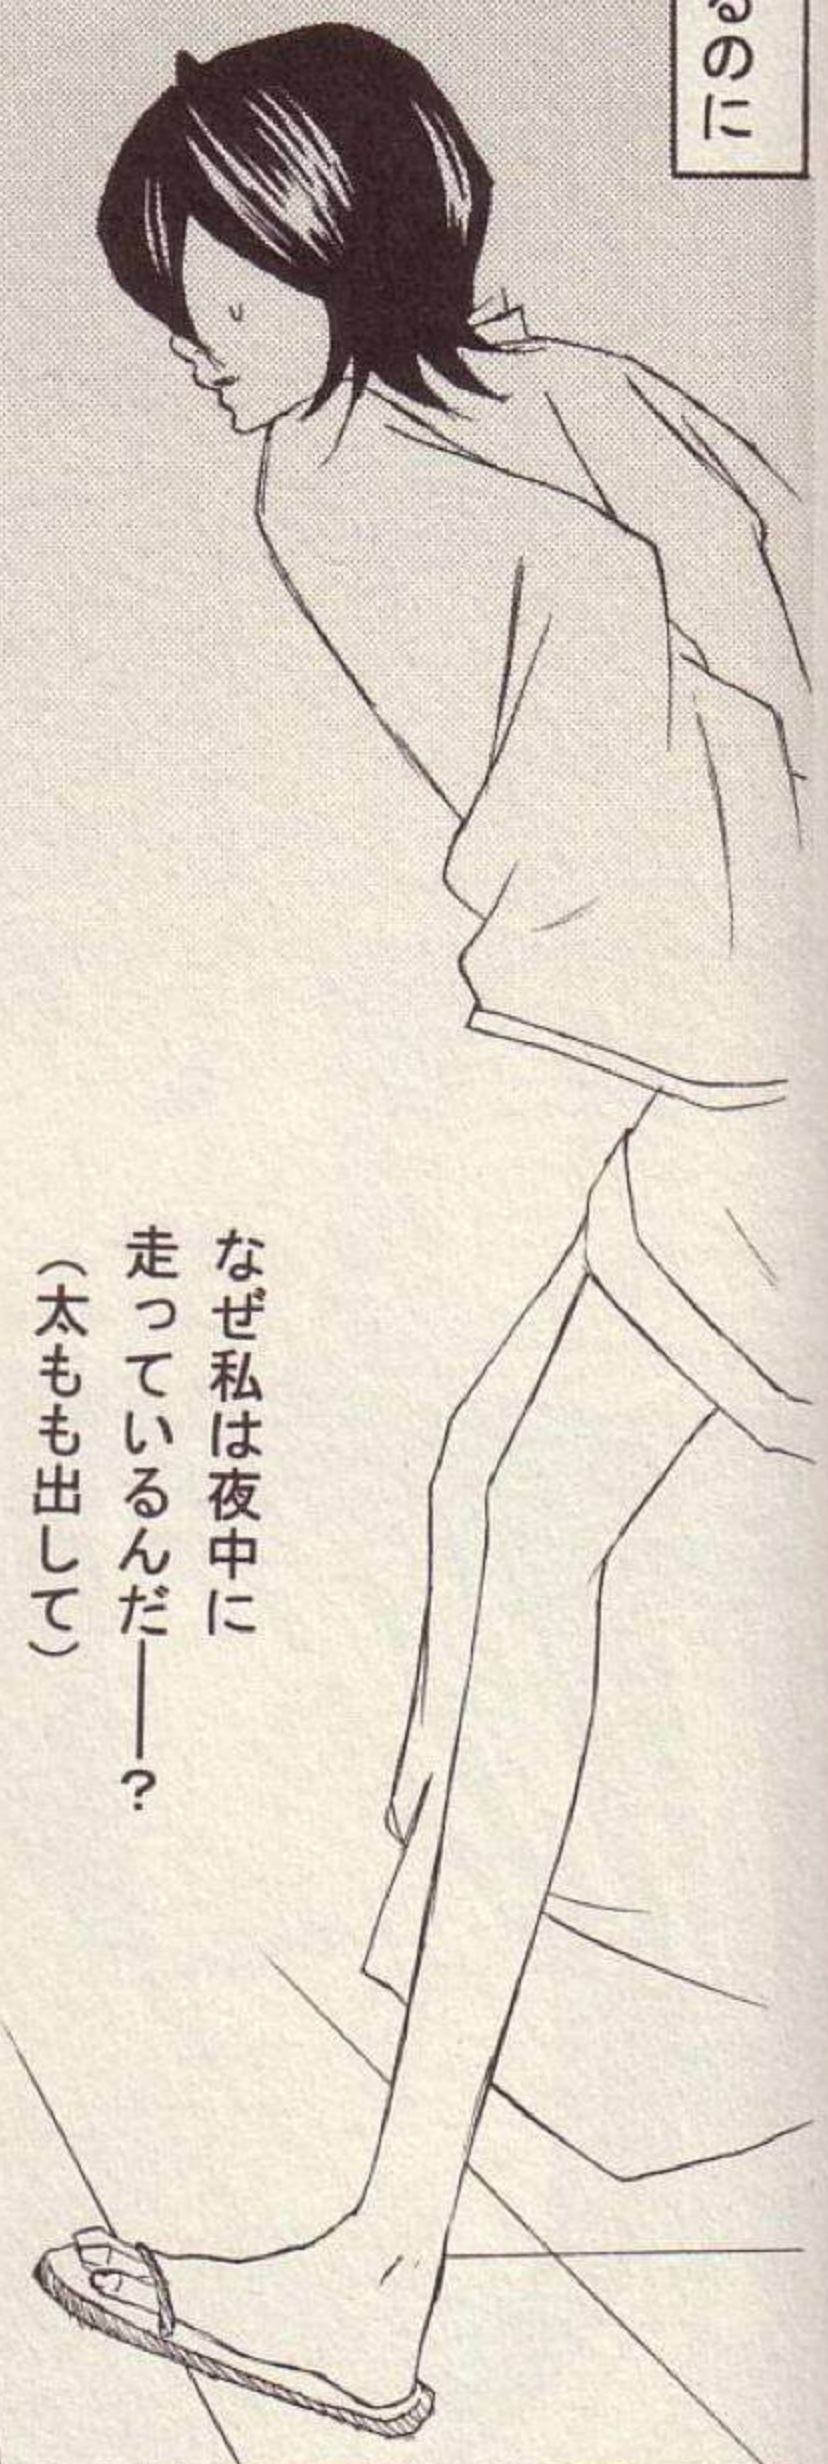 るのに
なぜ私は夜中に
走っているんだ——？
（太もも出して）